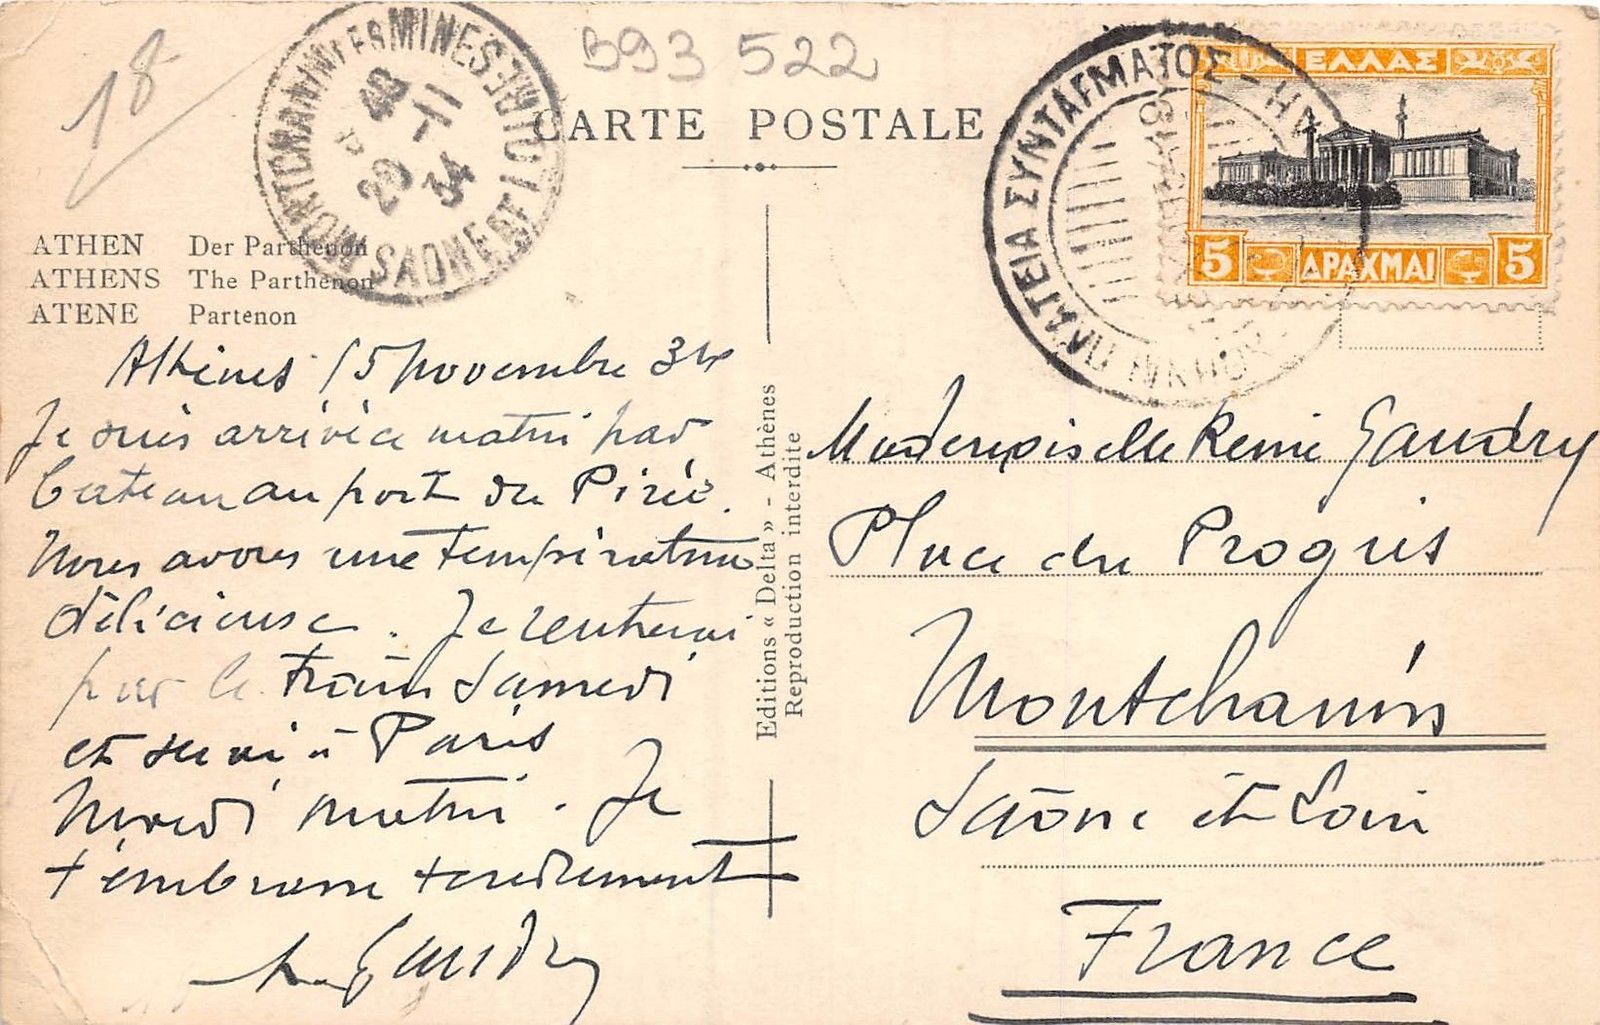 18
B93 522
CARTE POSTALE
MONTCHANIN LES MINES
SAONE ET LOIRE
20 -11
34
ΠΛΑΤΕΙΑ ΣΥΝΤΑΓΜΑΤΟΣ
ΕΛΛΑΣ
5 ΔΡΑΧΜΑΙ 5
ATHEN Der Parthenon
ATHENS The Parthenon
ATENE Partenon
Athènes 15 Novembre 34
Je suis arrivé ce matin par
bateau au port du Pirée.
Nous avons une température
délicieuse. Je rentrerai
par le train Samedi
et serai à Paris
Mardi matin. Je
t'embrasse tendrement
Gaudry
Editions « Delta » - Athènes
Reproduction interdite
Mademoiselle Renée Gaudry
Place du Progrès
Montchanin
Saône et Loire
France